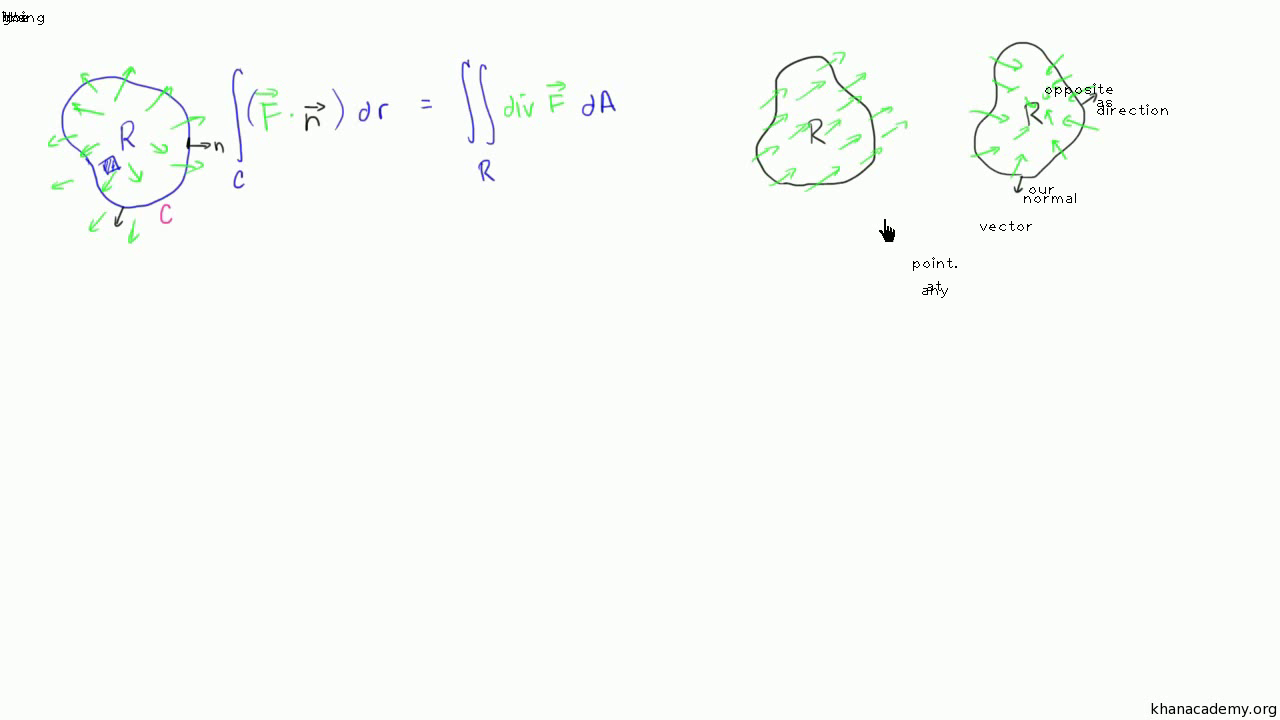 going
R
n
C
∫ (F⃗ · n⃗) dr = ∬ div F⃗ dA
C
R
R
R
opposite
as
direction
our
normal
vector
point.
at
any
khanacademy.org